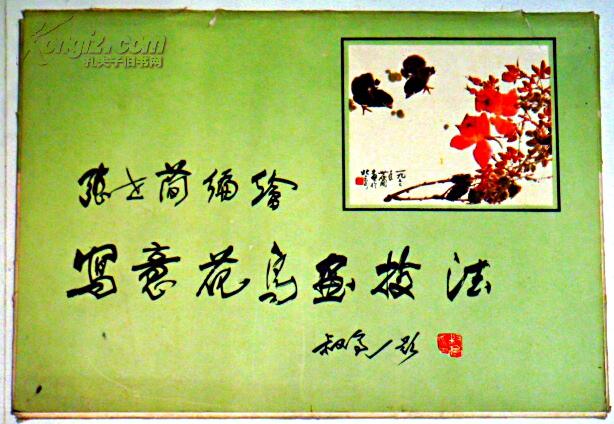 Kongfz.com
孔夫子旧书网
张世简编绘
寫意花鸟画技法
叔亮题